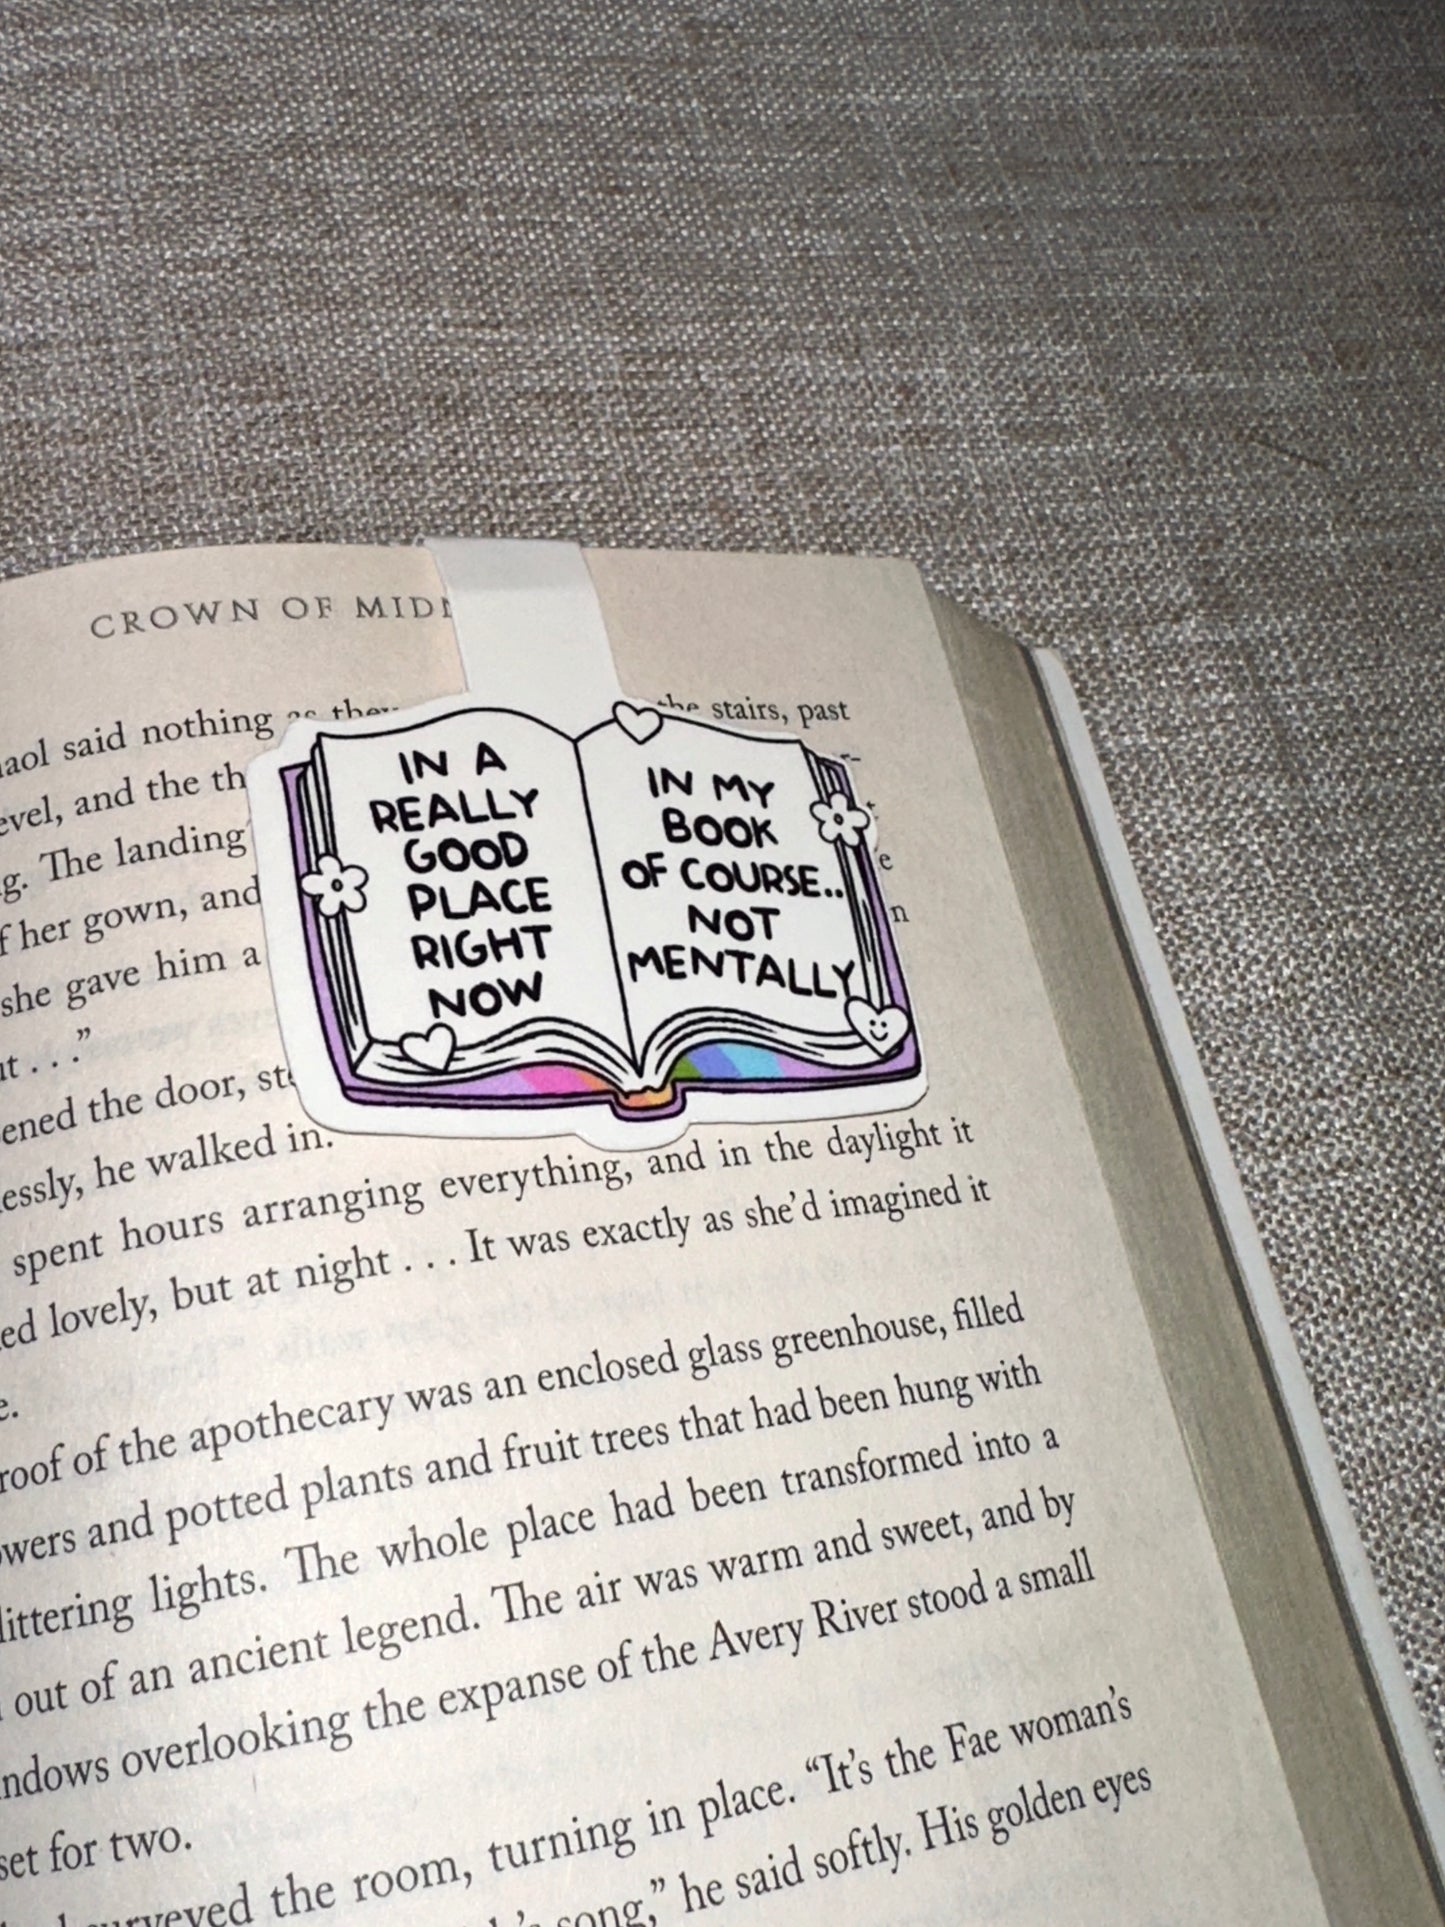 CROWN OF MID
said nothing as they the stairs, past
and the
The landing
her gown, and
she gave him a
. . ."
the door,
he walked in.
spent hours arranging everything, and in the daylight it
lovely, but at night . . . It was exactly as she'd imagined it
roof of the apothecary was an enclosed glass greenhouse, filled
and potted plants and fruit trees that had been hung with
lights. The whole place had been transformed into a
out of an ancient legend. The air was warm and sweet, and by
overlooking the expanse of the Avery River stood a small
set for two.
surveyed the room, turning in place. "It's the Fae woman's
song," he said softly. His golden eyes
IN A
REALLY
GOOD
PLACE
RIGHT
NOW
IN MY
BOOK
OF COURSE..
NOT
MENTALLY